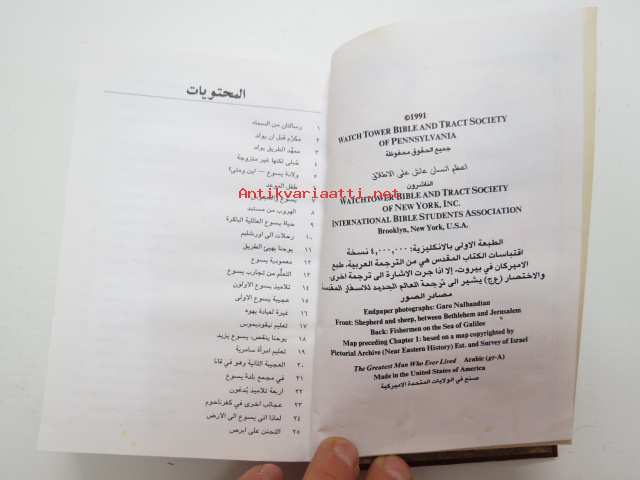 المحتويات
١ رسالتان من السماء
٢ مكرَّم قبل ان يولد
٣ ممهِّد الطريق يولد
٤ حُبلى لكنها غير متزوجة
٥ ولادة يسوع — اين ومتى؟
٦ طفل الموعد
٧ يسوع والمنجمون
٨ الهروب من مستبد
٩ حياة يسوع العائلية الباكرة
١٠ رحلات الى اورشليم
١١ يوحنا يهيئ الطريق
١٢ معمودية يسوع
١٣ التعلُّم من تجارب يسوع
١٤ تلاميذ يسوع الاولون
١٥ عجيبة يسوع الاولى
١٦ غيرة لعبادة يهوه
١٧ تعليم نيقوديموس
١٨ يوحنا ينقص، يسوع يزيد
١٩ تعليم امرأة سامرية
٢٠ العجيبة الثانية وهو في قانا
٢١ في مجمع بلدة يسوع
٢٢ اربعة تلاميذ يُدعَون
٢٣ عجائب اخرى في كفرناحوم
٢٤ لماذا اتى يسوع الى الارض
٢٥ التحنن على ابرص
©1991
WATCH TOWER BIBLE AND TRACT SOCIETY
OF PENNSYLVANIA
جميع الحقوق محفوظة
اعظم انسان عاش على الاطلاق
الناشرون
WATCHTOWER BIBLE AND TRACT SOCIETY
OF NEW YORK, INC.
INTERNATIONAL BIBLE STUDENTS ASSOCIATION
Brooklyn, New York, U.S.A.
الطبعة الاولى بالانكليزية: ٤٬٠٠٠٬٠٠٠ نسخة
اقتباسات الكتاب المقدس هي من الترجمة العربية، طبع
الاميركان في بيروت، إلا اذا جرت الاشارة الى ترجمة اخرى.
والاختصار (ع‌ج) يشير الى ترجمة العالم الجديد للاسفار المقدسة
مصادر الصور
Endpaper photographs: Garo Nalbandian
Front: Shepherd and sheep, between Bethlehem and Jerusalem
Back: Fishermen on the Sea of Galilee
Map preceding Chapter 1: based on a map copyrighted by
Pictorial Archive (Near Eastern History) Est. and Survey of Israel
The Greatest Man Who Ever Lived Arabic (gt-A)
Made in the United States of America
صنع في الولايات المتحدة الاميركية
Antikvariaatti.net
Antikvariaatti.net
Antikvariaatti.net